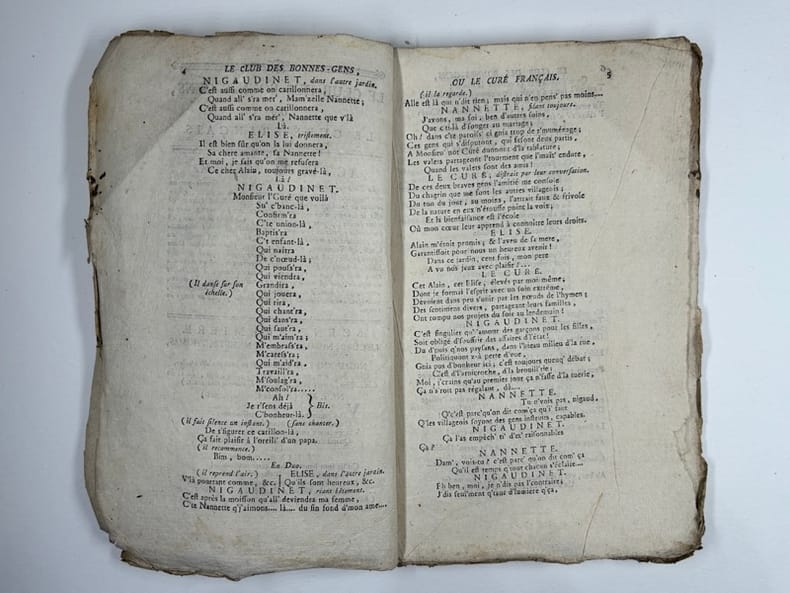 4 LE CLUB DES BONNES-GENS,
NIGAUDINET, dans l'autre jardin.
C'est aussi comme on carillonnera,
Quand all' s'ra mer', Mam'zelle Nannette;
C'est aussi comme on carillonnera,
Quand all' s'ra mer', Nannette que v'là
Là.
ELISE, tristement.
Il est bien sûr qu'on la lui donnera,
Sa chere amante, sa Nannette!
Et moi, je sais qu'on me refusera
Ce cher Alain, toujours gravé-là,
Là!
NIGAUDINET.
Monsieur l'Curé que voilà
Su' c'banc-là,
Confirm'ra
C'te union-là,
Baptis'ra
C't enfant-là,
Qui naîtra
De c'nœud-là;
Qui pouss'ra,
Qui viendra,
(Il danse sur son échelle.) Grandira,
Qui jouera,
Qui rira,
Qui chant'ra,
Qui dans'ra,
Qui saut'ra,
Qui m'aim'ra;
M'embrass'ra,
M'caress'ra;
Qui m'aid'ra,
Travaill'ra,
M'soulag'ra,
M'consol'ra.....
Ah!
Je r'sens déjà } Bis.
C'bonheur-là.
(il fait silence un instant.) (sans chanter.)
De s'figurer ce carillon-là,
Ça fait plaisir à l'oreill' d'un papa.
(il recommence.)
Bim, bom.....
En Duo.
(il reprend l'air.) ELISE, dans l'autre jardin.
V'là pourtant comme, &c. Qu'ils sont heureux, &c.
NIGAUDINET, riant bêtement.
C'est après la moisson qu'all' deviendra ma femme,
C'te Nannette q'j'aimons.... là.... du fin fond d'mon ame....
OU LE CURÉ FRANÇAIS. 5
(il la regarde.)
Alle est là qui n'dit rien; mais qui n'en pens' pas moins...
NANNETTE, filant toujours.
J'avons, ma foi, ben d'autres soins,
Que c'ti-là d'songer au mariage;
Oh! dans c'te paroisse gnia trop de r'muménage;
Ces gens qui s'disputont, qui fesont deux partis,
A Monsieur not' Curé donnont d'la tablature;
Les valets partageons l'tourment que l'maît' endure,
Quand les valets sont des amis!
LE CURÉ, distrait par leur conversation.
De ces deux braves gens l'amitié me console
Du chagrin que me font les autres villageois;
Du ton du jour, au moins, l'attrait faux & frivole
De la nature en eux n'étouffe point la voix;
Et la bienfaisance est l'école
Où mon cœur leur apprend à connoître leurs droits.
ELISE.
Alain m'étoit promis; & l'aveu de sa mere,
Garantissoit pour nous un heureux avenir!
Dans ce jardin, cent fois, mon pere
A vu nos jeux avec plaisir!...
LE CURÉ.
Cet Alain, cet Elise, élevés par moi-même;
Dont je formai l'esprit avec un soin extrême,
Devoient dans peu s'unir par les nœuds de l'hymen;
Des sentimens divers, partageant leurs familles,
Ont rompu nos projets du soir au lendemain!
NIGAUDINET.
C'est singulier qu'l'amour des garçons pour les filles,
Soit obligé d'souffrir des affaires d'l'état!
Du d'puis q'nos paysans, dans l'biau milieu d'la rue,
Politiquont z-à perte d'vue,
Gnia pus d'bonheur ici; c'est toujours queuq' débat;
C'est d'l'arnicroche, d'la brouill'rie;
Moi, j'crains qu'au premier jour ça n'fasse d'la tuerie,
Ça n's'roit pas régalant, dà....
NANNETTE.
Tu n'vois pas, nigaud,
Q'c'est parc'qu'on dit com'ça qu'i' faut
Q'les villageois soyont des gens instruits, capables.
NIGAUDINET.
Ça l'as empêch' ti' d'êt' raisonnables
Ça?
NANNETTE.
Dam', vois-tu? c'est parc' qu'on dit com' ça
Qu'il est temps q'tout chacun s'éclaire...
NIGAUDINET.
Eh ben, moi, je n'dis pas l'contraire;
J'dis seul'ment q'tant d'lumiere q'ça,